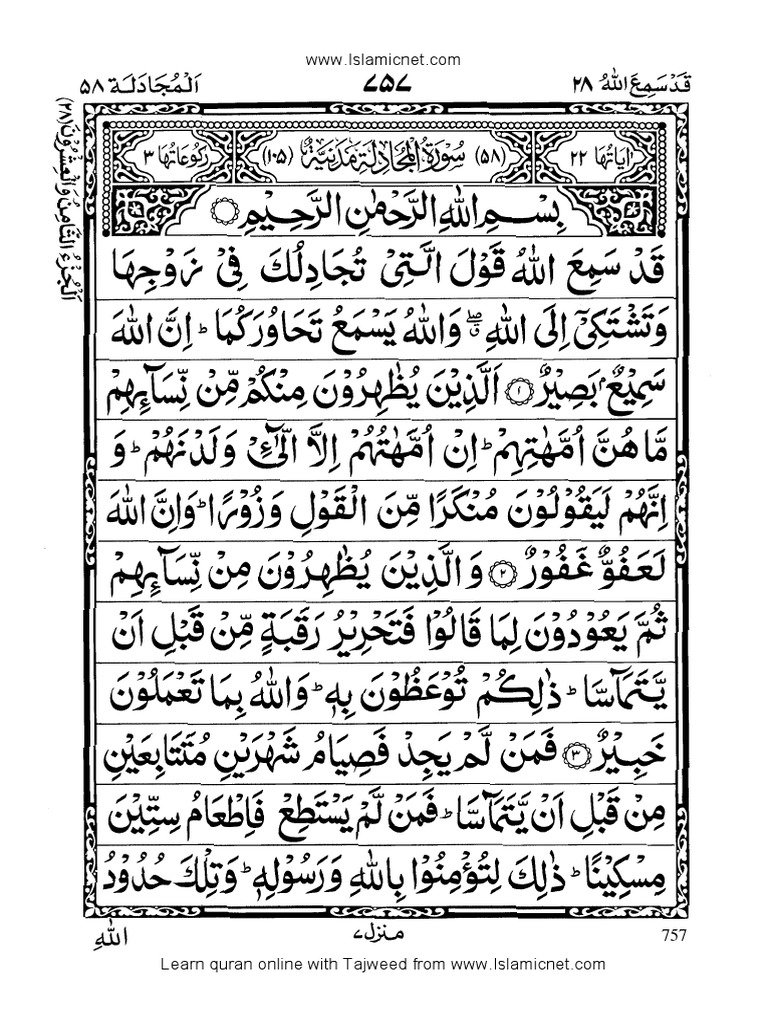 www.Islamicnet.com
قَدْ سَمِعَ اللّٰهُ ۲۸
۷۵۷
اَلْمُجَادَلَة ۵۸
اَلْجُزْءُ الثَّامِنُ وَالْعِشْرُوْنَ (۲۸)
اٰيَاتُهَا ۲۲
(۵۸) سُوْرَةُ الْمُجَادِلَةِ مَدَنِيَّةٌ (۱۰۵)
رُكُوْعَاتُهَا ۳
بِسْمِ اللّٰهِ الرَّحْمٰنِ الرَّحِيْمِ
قَدْ سَمِعَ اللّٰهُ قَوْلَ الَّتِيْ تُجَادِلُكَ فِيْ زَوْجِهَا
وَتَشْتَكِيْٓ اِلَى اللّٰهِ ۖۗ وَاللّٰهُ يَسْمَعُ تَحَاوُرَكُمَا ؕ اِنَّ اللّٰهَ
سَمِيْعٌۢ بَصِيْرٌ ۱ اَلَّذِيْنَ يُظٰهِرُوْنَ مِنْكُمْ مِّنْ نِّسَآئِهِمْ
مَّا هُنَّ اُمَّهٰتِهِمْ ؕ اِنْ اُمَّهٰتُهُمْ اِلَّا الّٰٓـِٔيْ وَلَدْنَهُمْ ؕ وَ
اِنَّهُمْ لَيَقُوْلُوْنَ مُنْكَرًا مِّنَ الْقَوْلِ وَزُوْرًا ؕ وَاِنَّ اللّٰهَ
لَعَفُوٌّ غَفُوْرٌ ۲ وَالَّذِيْنَ يُظٰهِرُوْنَ مِنْ نِّسَآئِهِمْ
ثُمَّ يَعُوْدُوْنَ لِمَا قَالُوْا فَتَحْرِيْرُ رَقَبَةٍ مِّنْ قَبْلِ اَنْ
يَّتَمَآسَّا ؕ ذٰلِكُمْ تُوْعَظُوْنَ بِهٖ ؕ وَاللّٰهُ بِمَا تَعْمَلُوْنَ
خَبِيْرٌ ۳ فَمَنْ لَّمْ يَجِدْ فَصِيَامُ شَهْرَيْنِ مُتَتَابِعَيْنِ
مِنْ قَبْلِ اَنْ يَّتَمَآسَّا ؕ فَمَنْ لَّمْ يَسْتَطِعْ فَاِطْعَامُ سِتِّيْنَ
مِسْكِيْنًا ؕ ذٰلِكَ لِتُؤْمِنُوْا بِاللّٰهِ وَرَسُوْلِهٖ ؕ وَتِلْكَ حُدُوْدُ
اللّٰهِ
منزل ۷
757
Learn quran online with Tajweed from www.Islamicnet.com